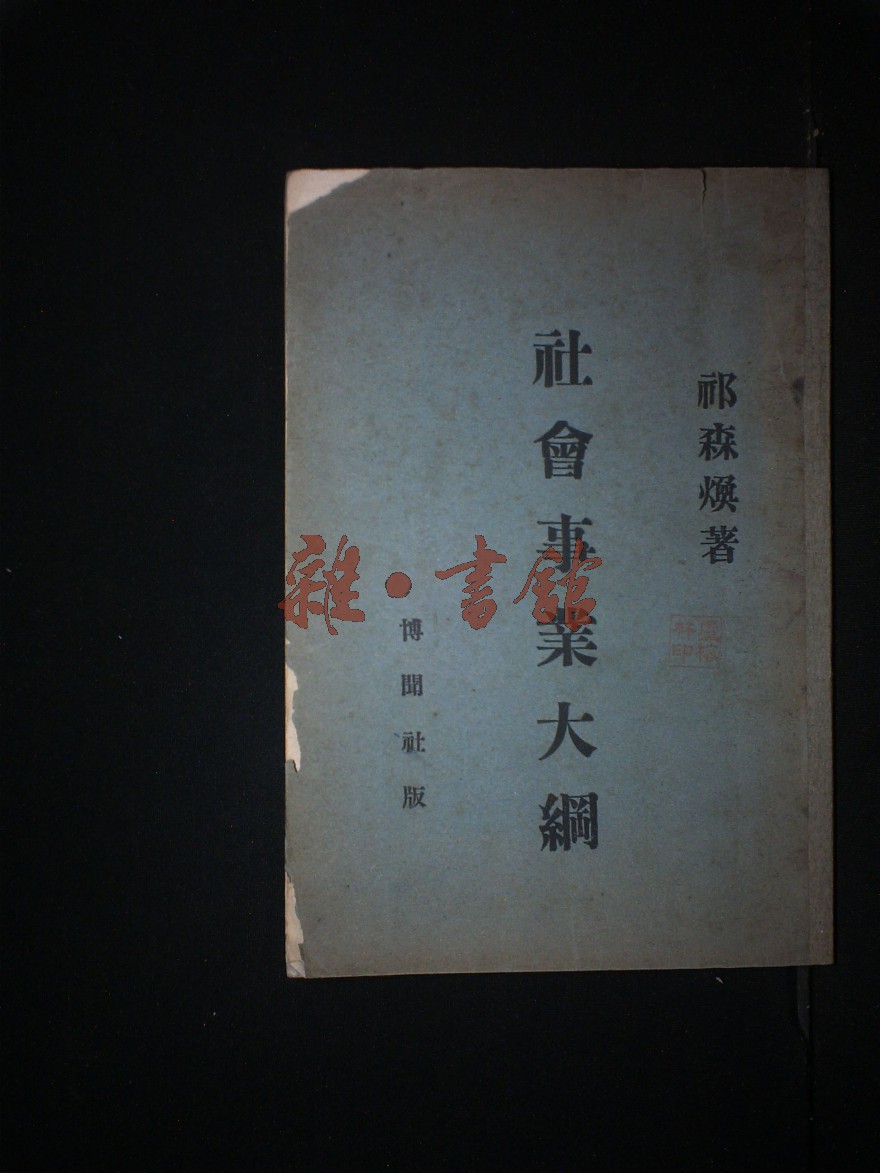 祁森煥著
社會事業大綱
博聞社版
雜·書館